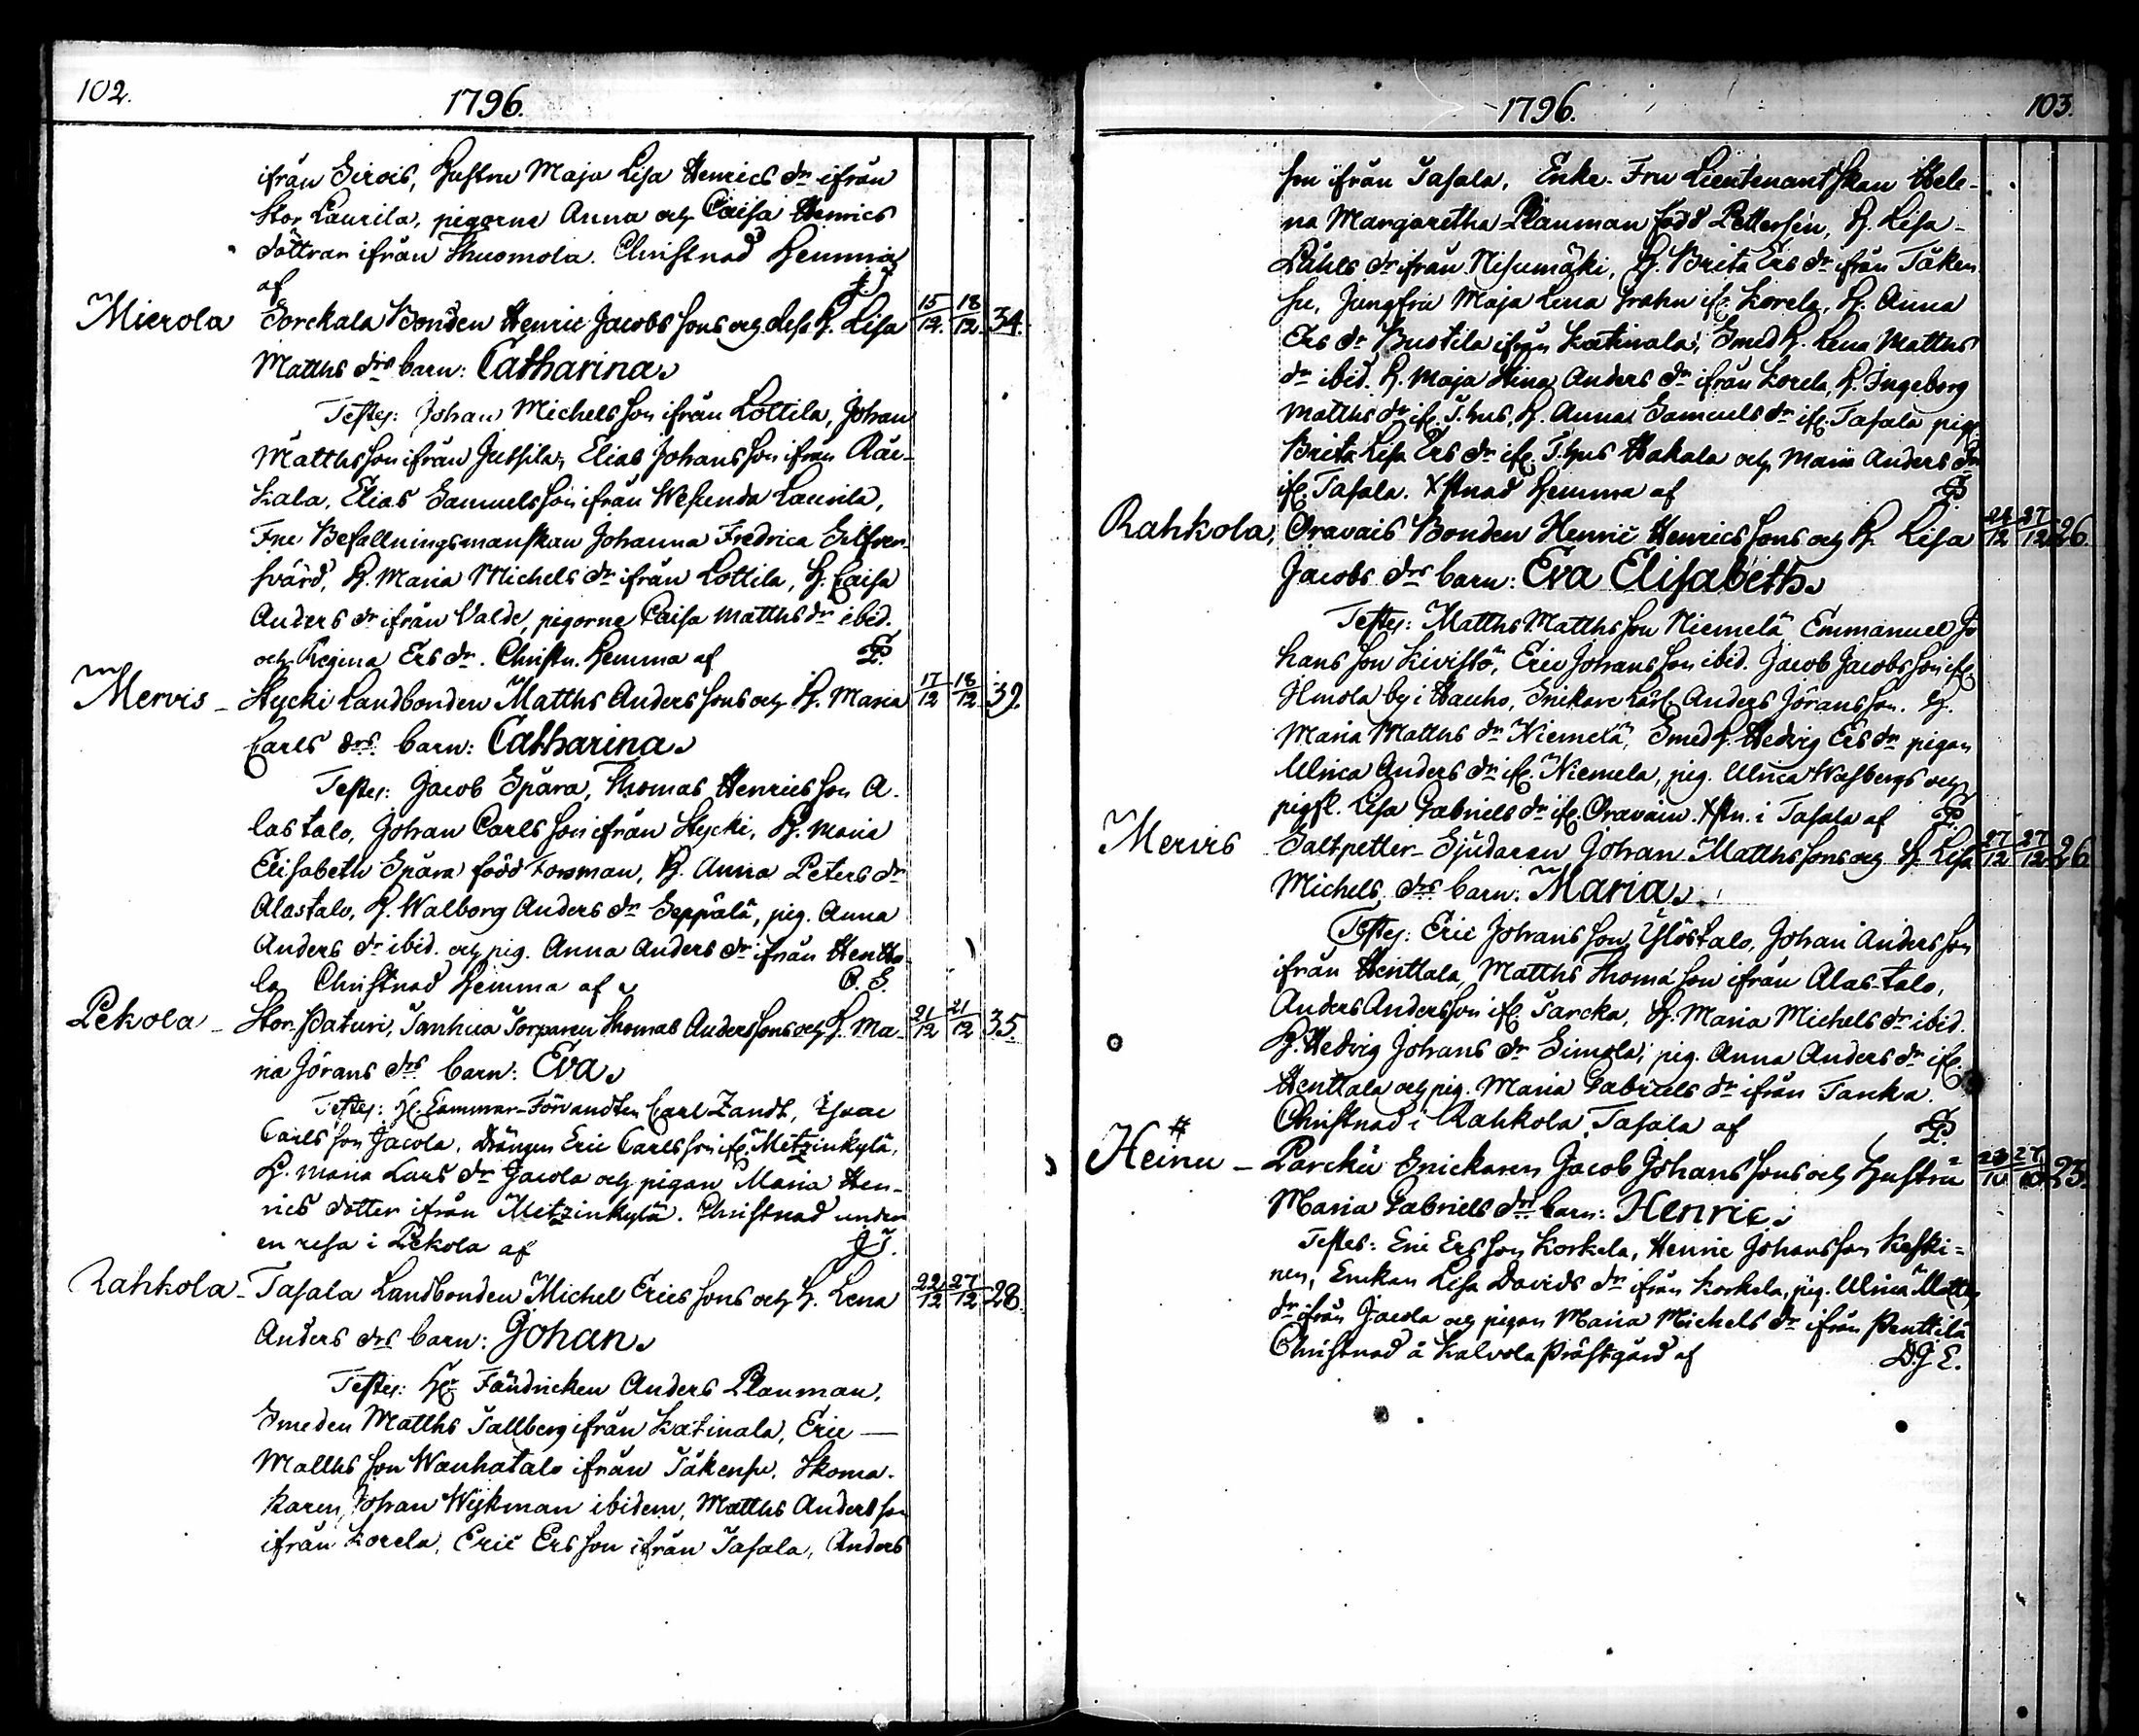 102.
1796.
ifrån Sirois, Hustru Maja Lisa Henrics dr ifrån
Stor Laurila, pigorne Anna och Caisa Henrics
döttrar ifrån Thuomola. Christnad hemma
af
Mierola Sorckala Bonden Henric Jacobs sons och dess h. Lisa 15/12. 18/12. 34.
Matths drs barn: Catharina
Testes: Johan Michelsson ifrån Lottila, Johan
Matthsson ifrån Jussila, Elias Johansson ifrån Rär-
kala, Elias Samuelsson ifrån Wesunda Laurila,
Fru Befallningsmanskan Johanna Fredrica Silfver-
svärd, H. Maria Michels dr ifrån Lottila, H. Caisa
Anders dr ifrån Valde, pigorne Caisa Matths dr ibid.
och Regina Ers dr. Christn. hemma af P.
Mervis - Stycki Landbonden Matths Anders sons och H. Maria 17/12 18/12 39.
Carls drs barn: Catharina
Testes: Jacob Spåra, Thomas Henricsson A-
lastalo, Johan Carlsson ifrån Stycki, H. Maria
Elisabeth Spåra född Forsman, H. Anna Peters dr
Alastalo, H. Walborg Anders dr Seppälä, pig. Anna
Anders dr ibid. och pig. Anna Anders dr ifrån Hentta-
la Christnad hemma af
Pekola - Stor Paturi, Tanhua Torparen Thomas Anderssons och H. Ma- 21/12 21/12 35.
ria Jörans drs barn: Eva
Testes: Hr Cammar-Förvandten Carl Zandt, Isaac
Carlsson Jacola, Drängen Eric Carlsson ifr. Metzinkylä,
H. Maria Lars dr Jacola och pigan Maria Hen-
rics dotter ifrån Metzinkylä. Christnad under
en resa i Pekola af JT.
Rahkola - Tasala Landbonden Michel Erics sons och H. Lena 22/12 27/12 28.
Anders drs barn: Johan
Testes: Hr Fändricken Anders Plauman,
Smeden Matths Tallberg ifrån Katinala, Eric
Matthsson Wanhatalo ifrån Täkensu, Skoma-
karen Johan Wijkman ibidem, Matths Andersson
ifrån Korela, Eric Ersson ifrån Tasala, Anders
1796.
103.
son ifrån Tasala, Enke-Fru Lieutenantskan Hele-
na Margaretha Plauman född Pettersén, H. Lisa
Påhls dr ifrån Nisumäki, H. Brita Ers dr ifrån Täken
su, Jungfru Maja Lena Grahn ifr. Korela, H. Anna
Ers dr Bustila ifrån Katinala, Smed H. Lena Matths
dr ibid. H. Maja Stina Anders dr ifrån Korela, H. Ingeborg
Matths dr ifr. T.hus, H. Anna Samuels dr ifr. Tasala pig.
Brita Lisa Ers dr ifr. T.hus Hakala och Maria Anders dr
ifr. Tasala. Xstnad hemma af P.
Rahkola, Oravais Bonden Henric Henrics sons och H. Lisa 27/12 26.
Jacobs drs barn: Eva Elisabeth
Testes: Matths Matthsson Niemelä Emmanuel Jo
hansson Kivistö, Eric Johansson ibid. Jacob Jacobsson ifr.
Ilmola by i Hauho, Snickare Lärl. Anders Jöransson. H.
Maria Matths dr Niemelä, Smed H. Hedvig Ers dr pigan
Ulrica Anders dr ifr. Niemela, pig. Ulrica Wasbergs och
Lisa Gabriels dr ifr. Oravain. Xstn. i Tasala af P.
Mervis Saltpetter-Sjudaren Johan Matthssons och H. Lisa 27/12 27/12 26
Michels drs barn: Maria
Testes: Eric Johansson Ylöstalo, Johan Andersson
ifrån Henttala, Matths Thomasson ifrån Alas-talo,
Anders Andersson ifr. Tarcka, H. Maria Michels dr ibid.
H. Hedvig Johans dr Simola, pig. Anna Anders dr ifr.
Henttala och pig. Maria Gabriels dr ifrån Tanka.
Christnad i Rahkola Tasala af P.
#
Heinu - Parckü Snickaren Jacob Johans sons och hustru 23.
Maria Gabriels drs barn: Henric
Testes: Eric Ersson Korkela, Henric Johansson Keski-
nen, Enkan Lisa Davids dr ifrån Korkela, pig. Ulrica Matths
dr ifrån Jacola och pigan Maria Michels dr ifrån Penttilä
Christnad å Kalvola Prästgård af D.G.E.